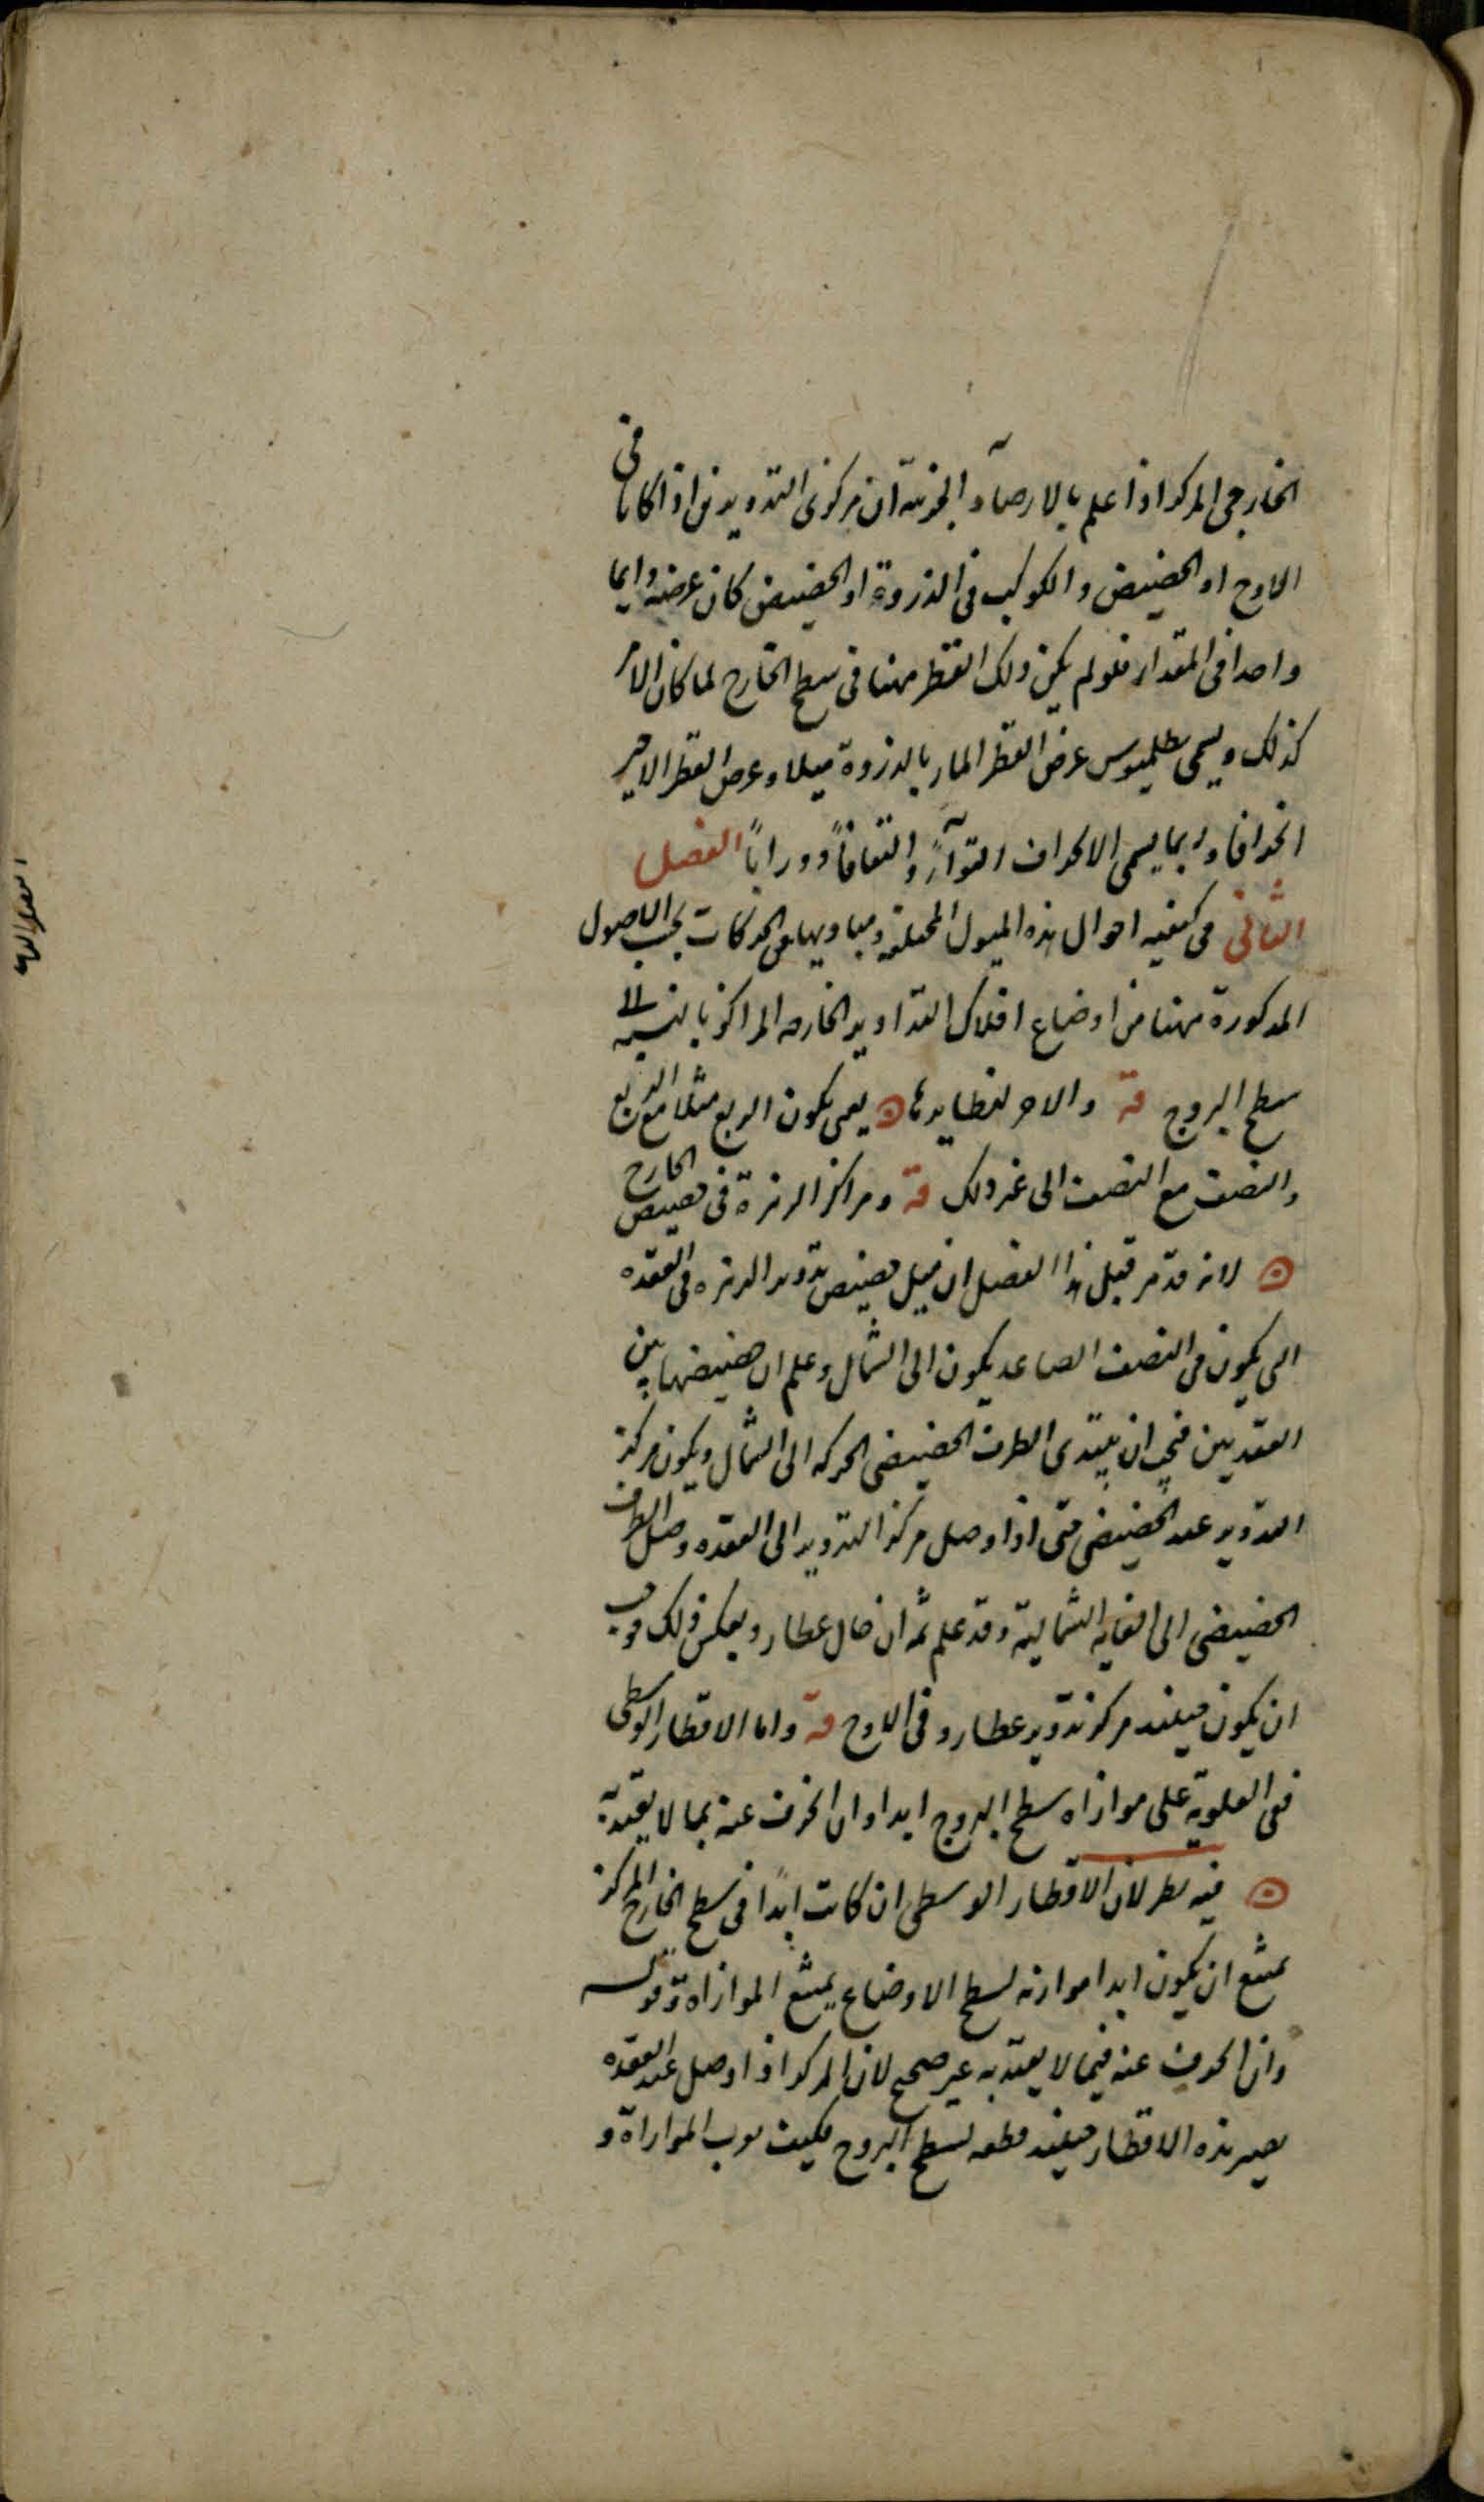 الخارجى المركز اذا علم بالارصاد الجزئية ان مركزى التدويرين اذا كانا فى
الاوج او الحضيض والكوكب فى الذروة او الحضيض كان عرضه دايما
واحدا فى المقدار فلو لم يكن ذلك القطر مهنا فى سطح الخارج لما كان الامر
كذلك ويسمى بطلميوس عرض القطر المار بالذروة ميلا وعرض القطر الاخر
انحرافا وربما يسمى الانحراف التوآء والتفافاً ووراباً الفصل
الثانى فى كيفيه احوال هذه الميول المختلفة ومباديها من الحركات بحسب الاصول
المذكورة مهنا من اوضاع افلاك التداوير الخارجه المراكز بالنسبه الى
سطح البروج قه والاخر لنظايرها ۞ يعنى يكون الربع مثلا مع الربع
والنصف مع النصف الى غير ذلك قه ومراكز الزهرة فى حضيض الخارج
۞ لانه قد مر قبل هذا الفصل ان ميل حضيض تدوير الزهره فى العقده
التى يكون فى النصف الصاعد يكون الى الشمال وعلم ان حضيضها بين
العقدتين فيجب ان يبتدى الطرف الحضيضى الحركه الى الشمال ويكون مركز
التدوير عند الحضيض حتى اذا وصل مركز التدوير الى العقده وصل الطرف
الحضيضى الى الغايه الشمالية وقد علم ثمه ان حال عطارد بعكس ذلك فوجب
ان يكون حينئذ مركز تدوير عطارد فى الاوج قه واما الاقطار الوسطى
ففى العلوية على موازاه سطح البروج ابدا وان انحرف عنه بما لا يعتد به
۞ فيه نظر لان الاقطار الوسطى ان كانت ابداً فى سطح الخارج المركز
يمتنع ان يكون ابدا موازنه لسطح الاوضاع يمتنع الموازاه وقوله
وان انحرف عنه فيما لا يعتد به غير صحيح لان المركز اذا وصل عند العقده
يصير هذه الاقطار حينئذ قطعه لسطح البروج فكيف الموازاة و